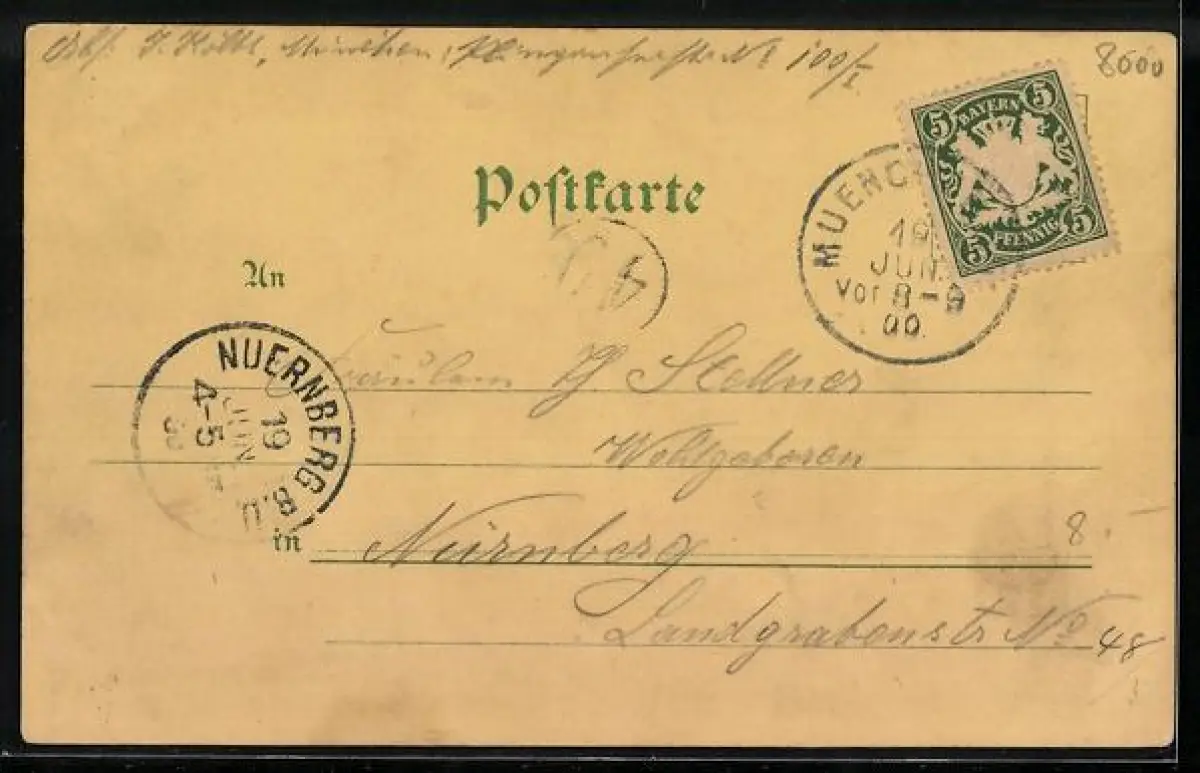 Abs. J. Kolbl, München, Plinganserstr. No 100/I
8000
5 BAYERN 5
5 PFENNIG 5
Postkarte
MUENC
19
JUN.
Vor 8-9
00.
4
An
Fräulein H. Stellner
NUERNBERG 8.U
19
JUN
4-5
00
Wohlgeboren
in Nürnberg
8.
Landgrabenstr No 48